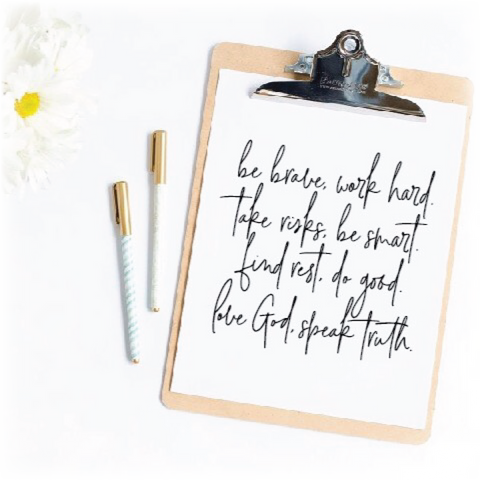 be brave, work hard.
take risks, be smart.
find rest, do good.
love God, speak truth.